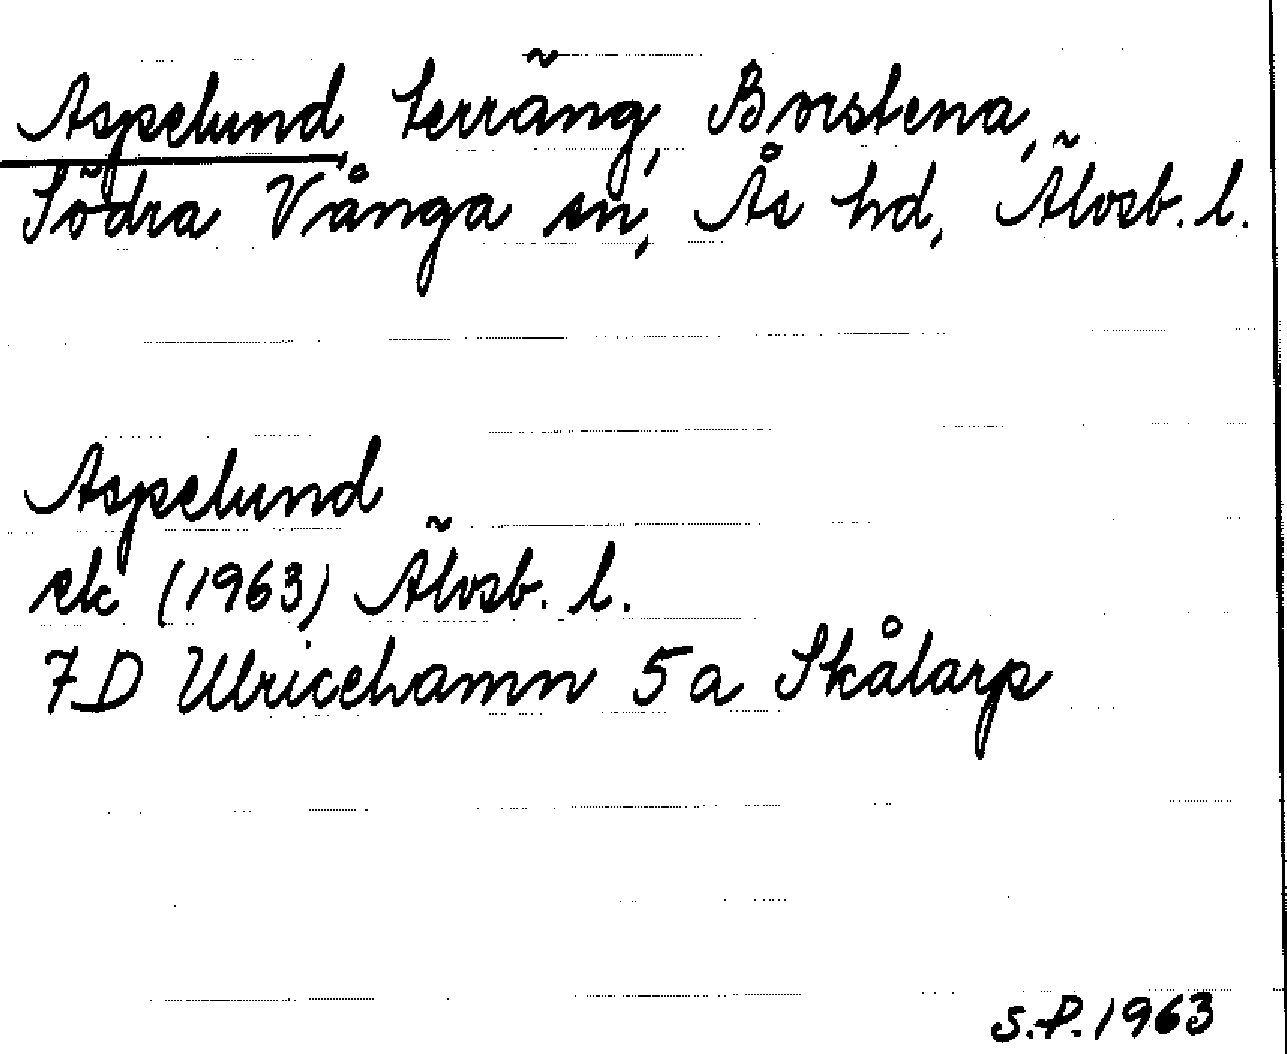 Aspelund, terräng, Borstena,
Södra Vånga sn, Ås hd, Älvsb. l.
Aspelund
ek (1963) Älvsb. l.
7D Ulricehamn 5a Skålarp
S.P. 1963